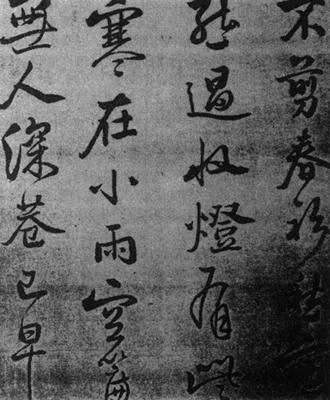 不剪春衫愁意
態過收燈有些
寒在小雨空簾
無人深巷已早